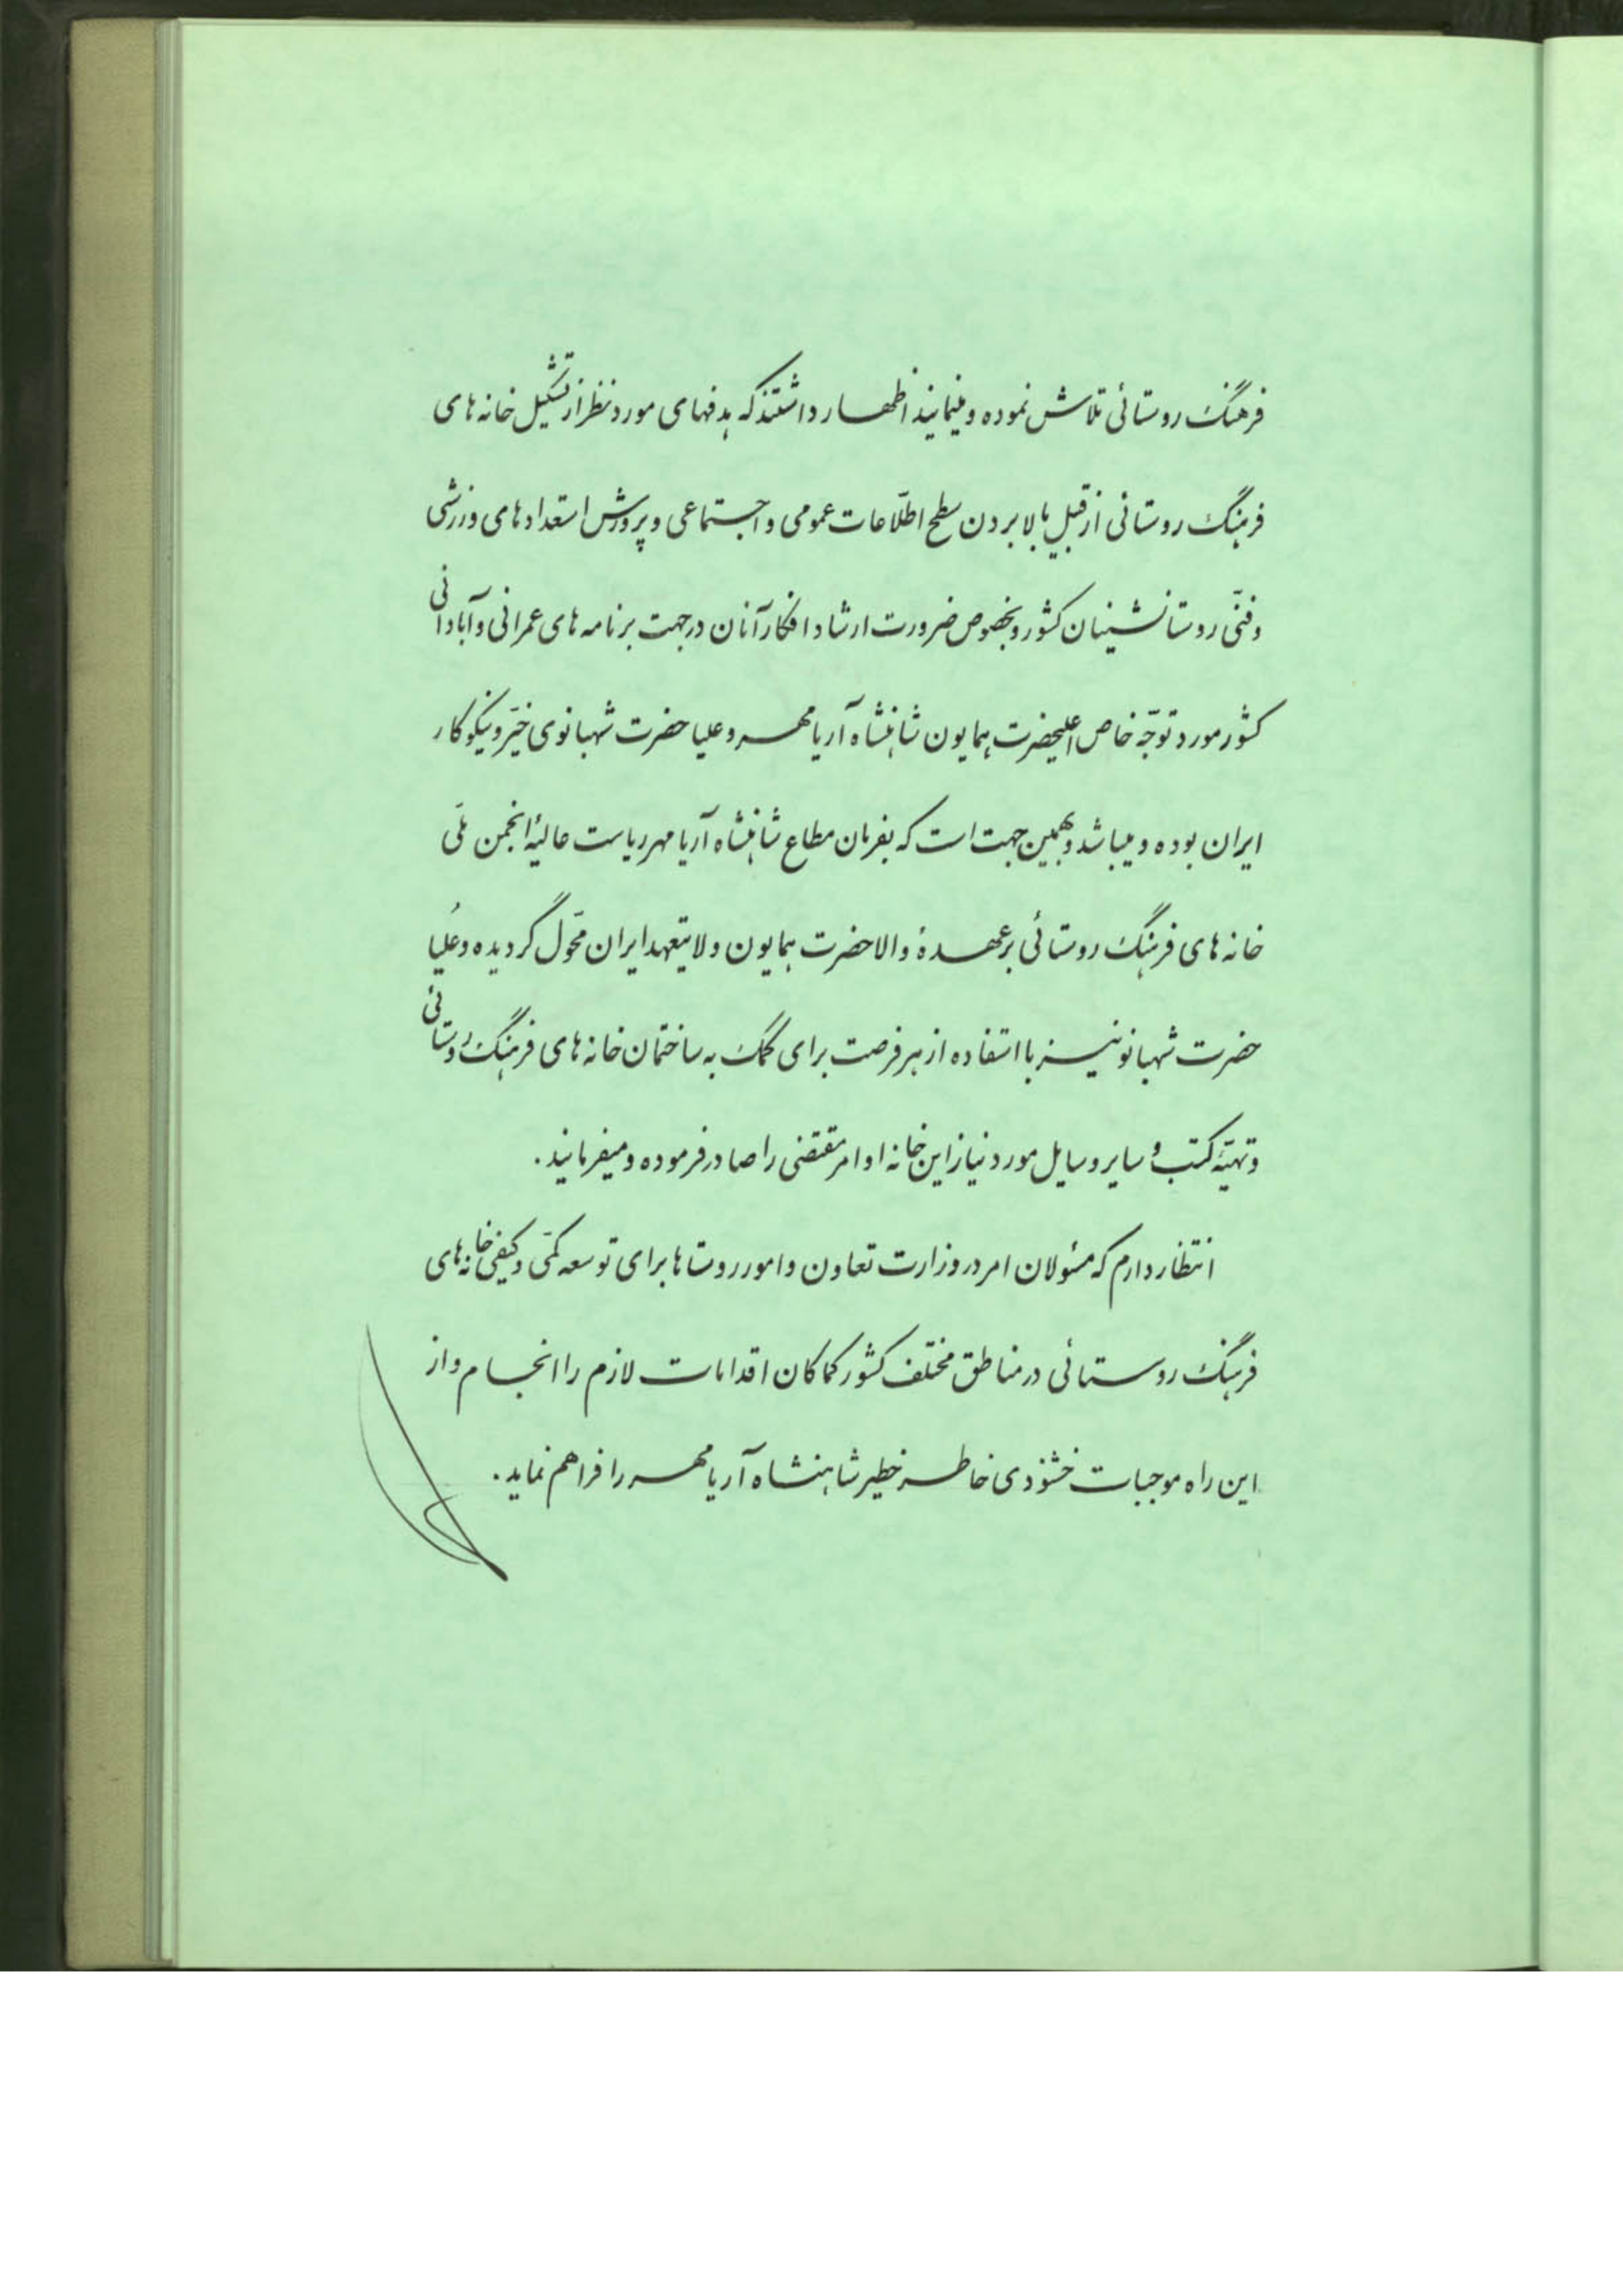 فرهنگ روستائی تلاش نموده و مینمایند اظهار داشتند که هدفهای مورد نظر از تشکیل خانه های
فرهنگ روستائی از قبیل بالا بردن سطح اطلّاعات عمومی و اجتماعی و پرورش استعدادهای ورزشی
و فنّی روستانشینان کشور و بخصوص ضرورت ارشاد افکار آنان در جهت برنامه های عمرانی و آبادانی
کشور مورد توجّه خاص اعلیحضرت همایون شاهنشاه آریامهر و علیا حضرت شهبانوی خیّر و نیکوکار
ایران بوده و میباشد و بهمین جهت است که بفرمان مطاع شاهنشاه آریامهر ریاست عالیهٔ انجمن ملّی
خانه های فرهنگ روستائی بر عهدهٔ والاحضرت همایون ولایتعهد ایران محوّل گردیده و عُلیا
حضرت شهبانو نیز با استفاده از هر فرصت برای کمک به ساختمان خانه های فرهنگ روستائی
و تهیّه کتب و سایر وسایل مورد نیاز این خانه ها اوامر مقتضی را صادر فرموده و میفرمایند.
انتظار دارم که مسئولان امر در وزارت تعاون و امور روستاها برای توسعه کمّی و کیفی خانه های
فرهنگ روستائی در مناطق مختلف کشور کماکان اقدامات لازم را انجام و از
این راه موجبات خشنودی خاطر خطیر شاهنشاه آریامهر را فراهم نماید.